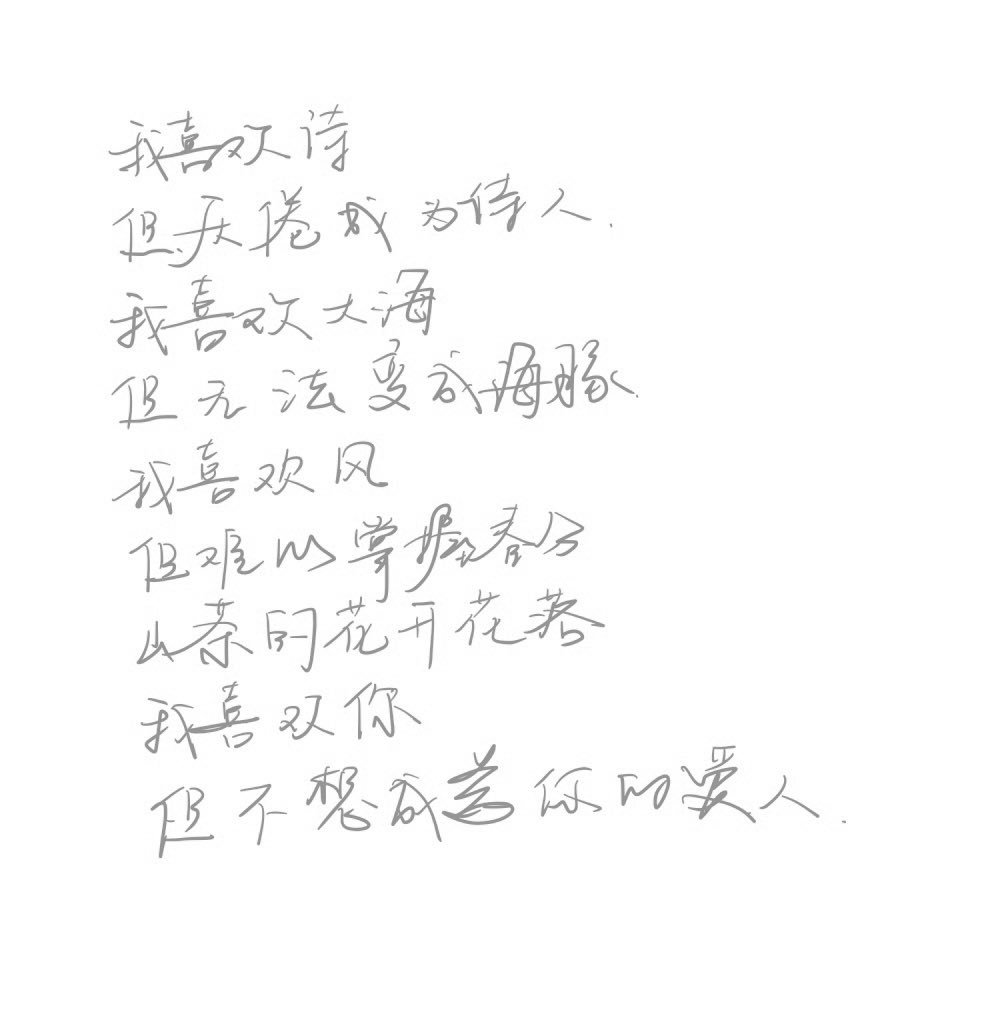 我喜欢诗
但厌倦成为诗人.
我喜欢大海
但无法变成海豚.
我喜欢风
但难以掌握春分
山茶的花开花落
我喜欢你
但不想成为你的爱人.